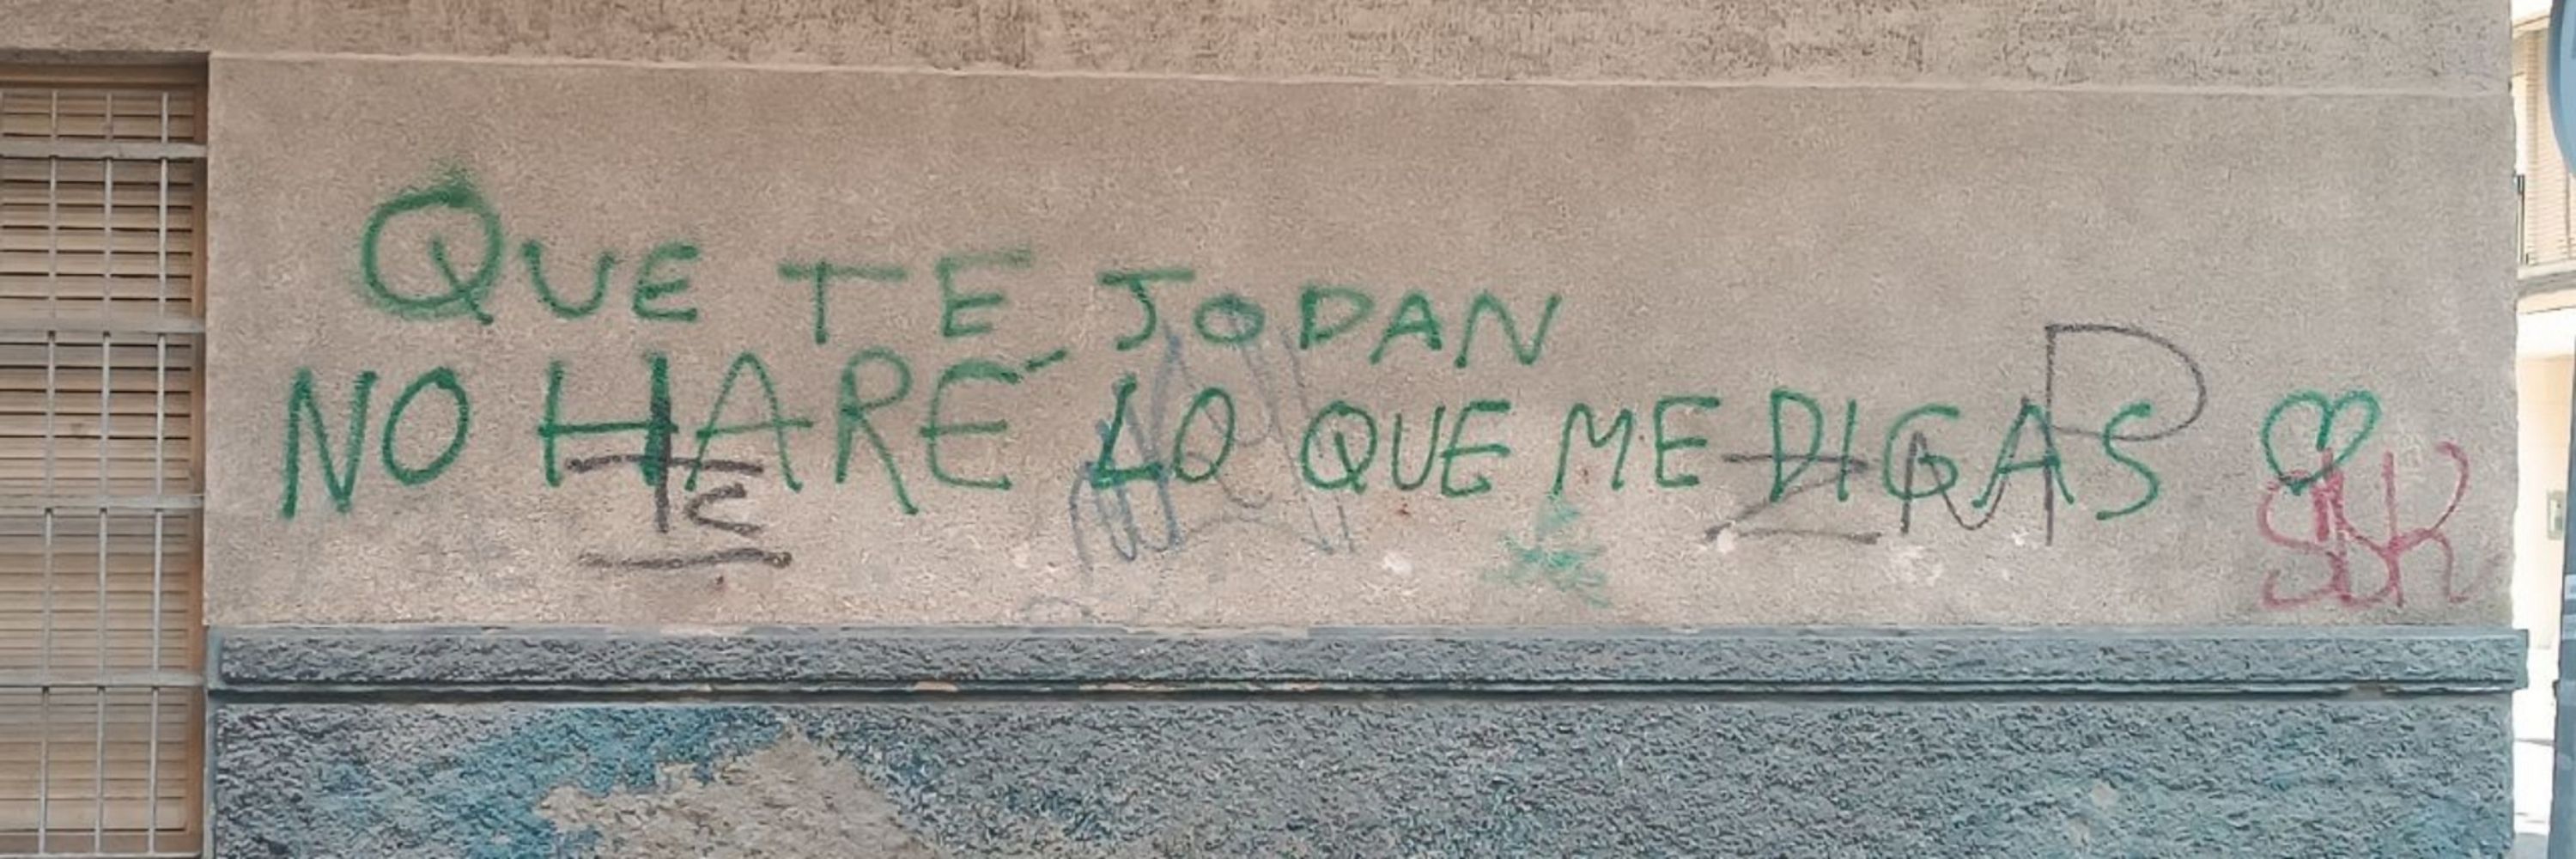 QUE TE JODAN
NO HARÉ LO QUE ME DIGAS